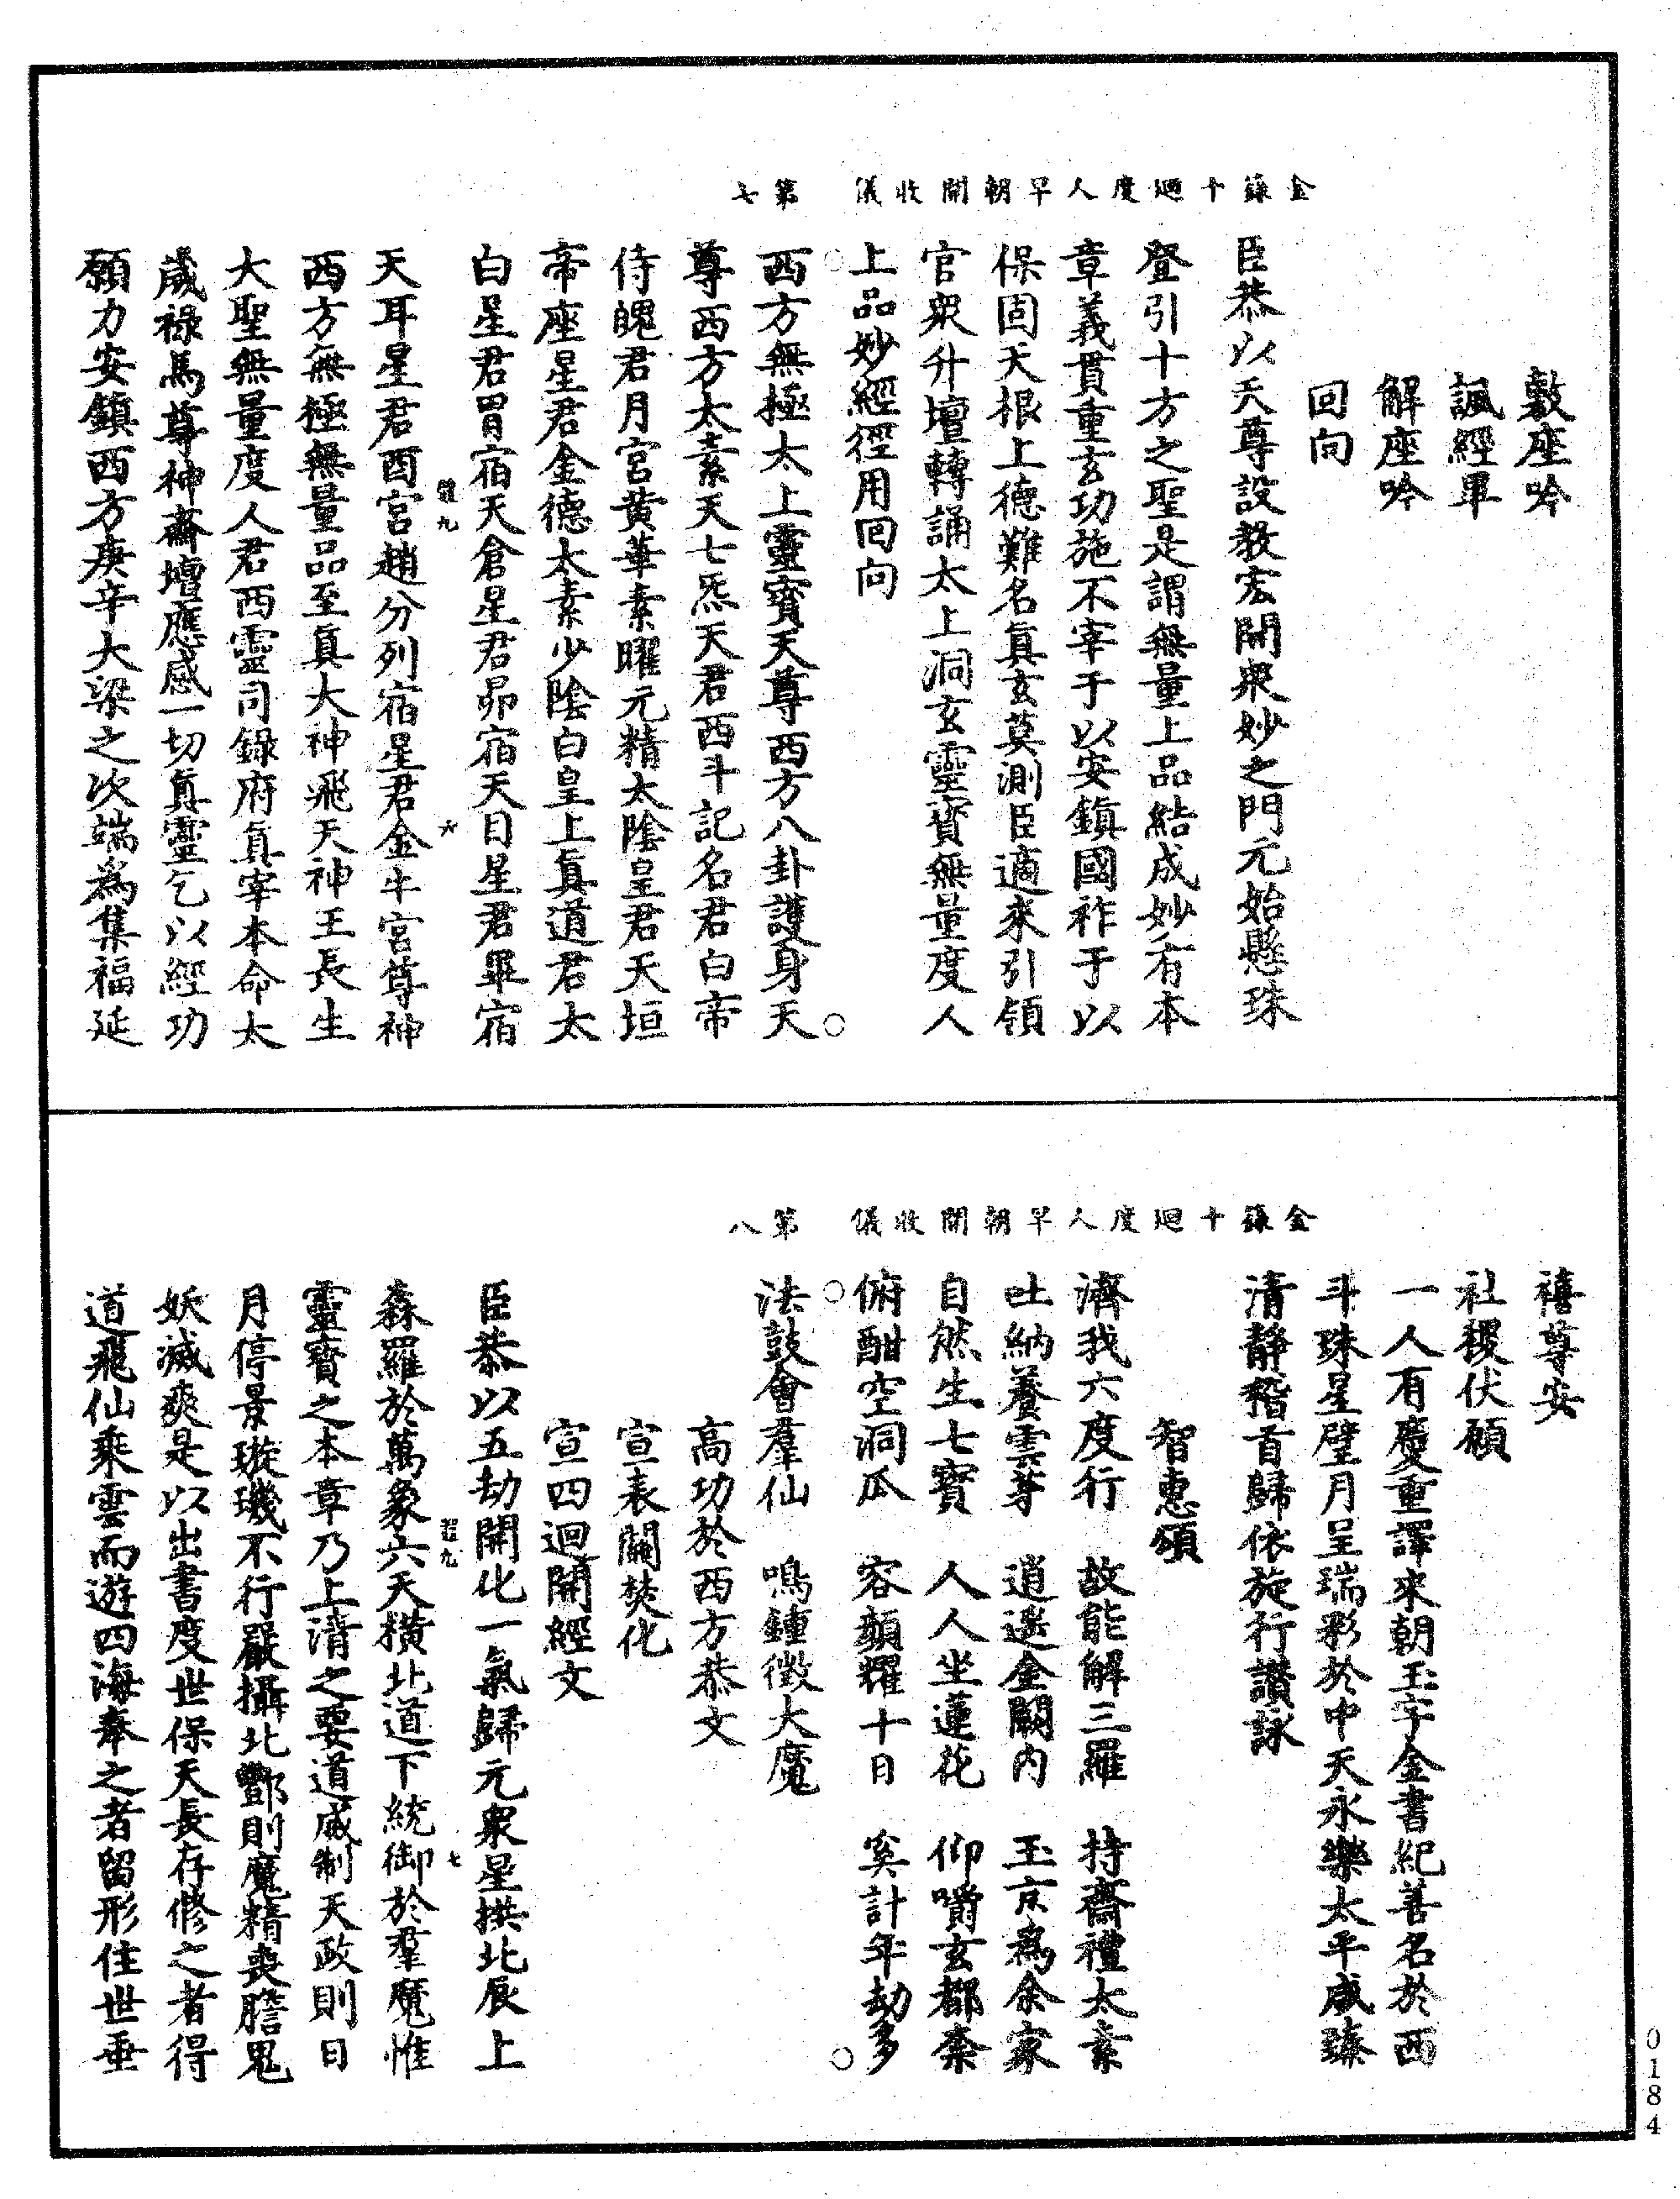 金籙十迴度人早朝開收儀　第七
敷座吟
諷經畢
解座吟
回向
臣恭以天尊設教宏開衆妙之門元始懸珠
登引十方之聖是謂無量上品結成妙有本
章義貫重玄功施不宰于以安鎮國祚于以
保固天根上德難名真玄莫測臣適來引領
官衆升壇轉誦太上洞玄靈寳無量度人
上品妙經徑用回向
西方無極太上靈寳天尊西方八卦護身天
尊西方太素天七炁天君西斗記名君白帝
侍魄君月宮黄華素曜元精太陰皇君天垣
帝座星君金德太素少陰白皇上真道君太
白星君胃宿天倉星君昴宿天目星君畢宿
天耳星君酉宮趙分列宿星君金牛宮尊神
西方無極無量品至真大神飛天神王長生
大聖無量度人君西靈司錄府真宰本命太
歲祿馬尊神齋壇應感一切真靈乞以經功
願力安鎮西方庚辛大梁之次端為集福延
九
六
金籙十迴度人早朝開收儀　第八
禧尊安
社稷伏願
一人有慶重譯來朝玉字金書紀善名於西
斗珠星璧月呈瑞彩於中天永樂太平咸臻
清静稽首歸依施行讃詠
智惠頌
濟我六度行　故能解三羅　持齋禮太素
吐納養雲芽　逍遥金闕内　玉京為余家
自然生七寳　人人坐蓮花　仰嚼玄都柰
俯酣空洞瓜　容顔耀十日　奚計年劫多
法鼓會羣仙　鳴鍾徵大魔
高功於西方恭文
宣表關焚化
宣四迴開經文
臣恭以五劫開化一氣歸元衆星拱北辰上
森羅於萬象六天横北道下統御於羣魔惟
靈寳之本章乃上清之要道威制天政則日
月停景璇璣不行嚴攝北酆則魔精喪膽鬼
妖滅爽是以出書度世保天長存修之者得
道飛仙乘雲而遊四海奉之者留形住世垂
九
七
0184